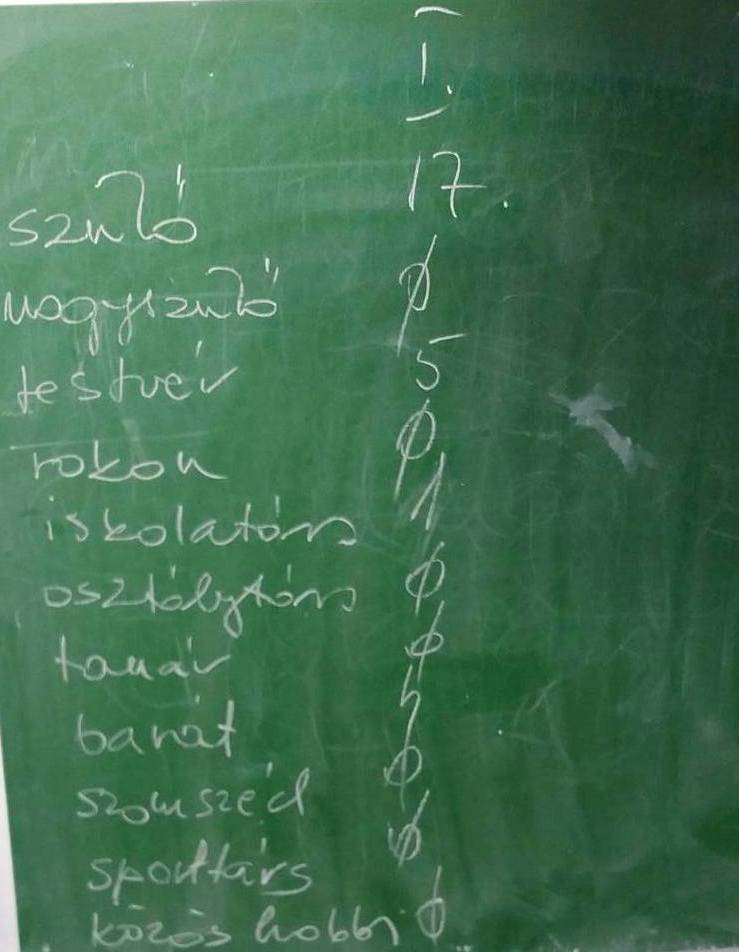 I.
szülő 17.
nagyszülő ∅
testvér 5
rokon ∅
iskolatárs 1
osztálytárs ∅
tanár ∅
barát 5
szomszéd ∅
sporttárs ∅
közös hobbi ∅